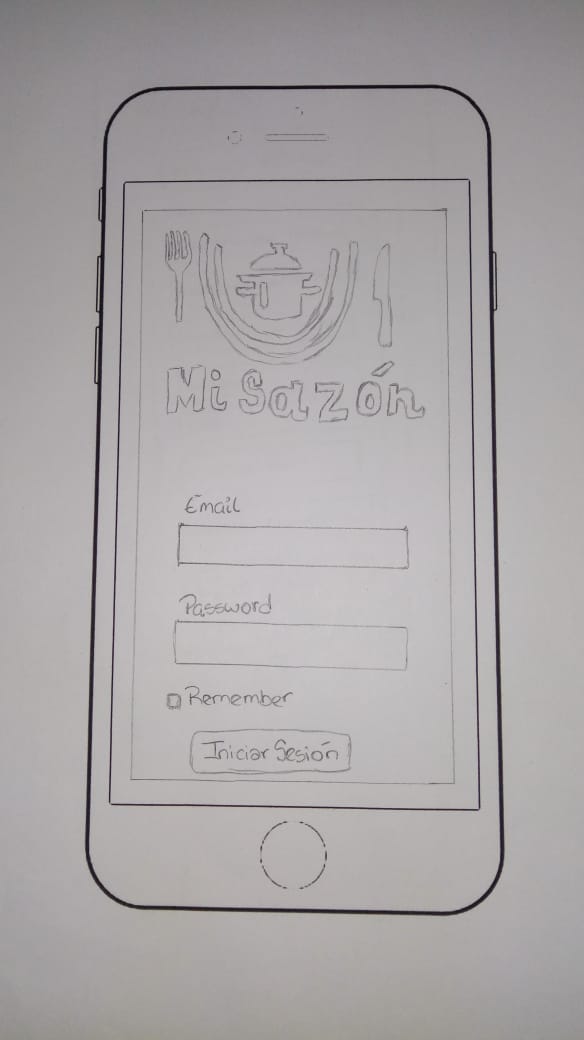 Mi Sazón
Email
Password
Remember
Iniciar Sesión